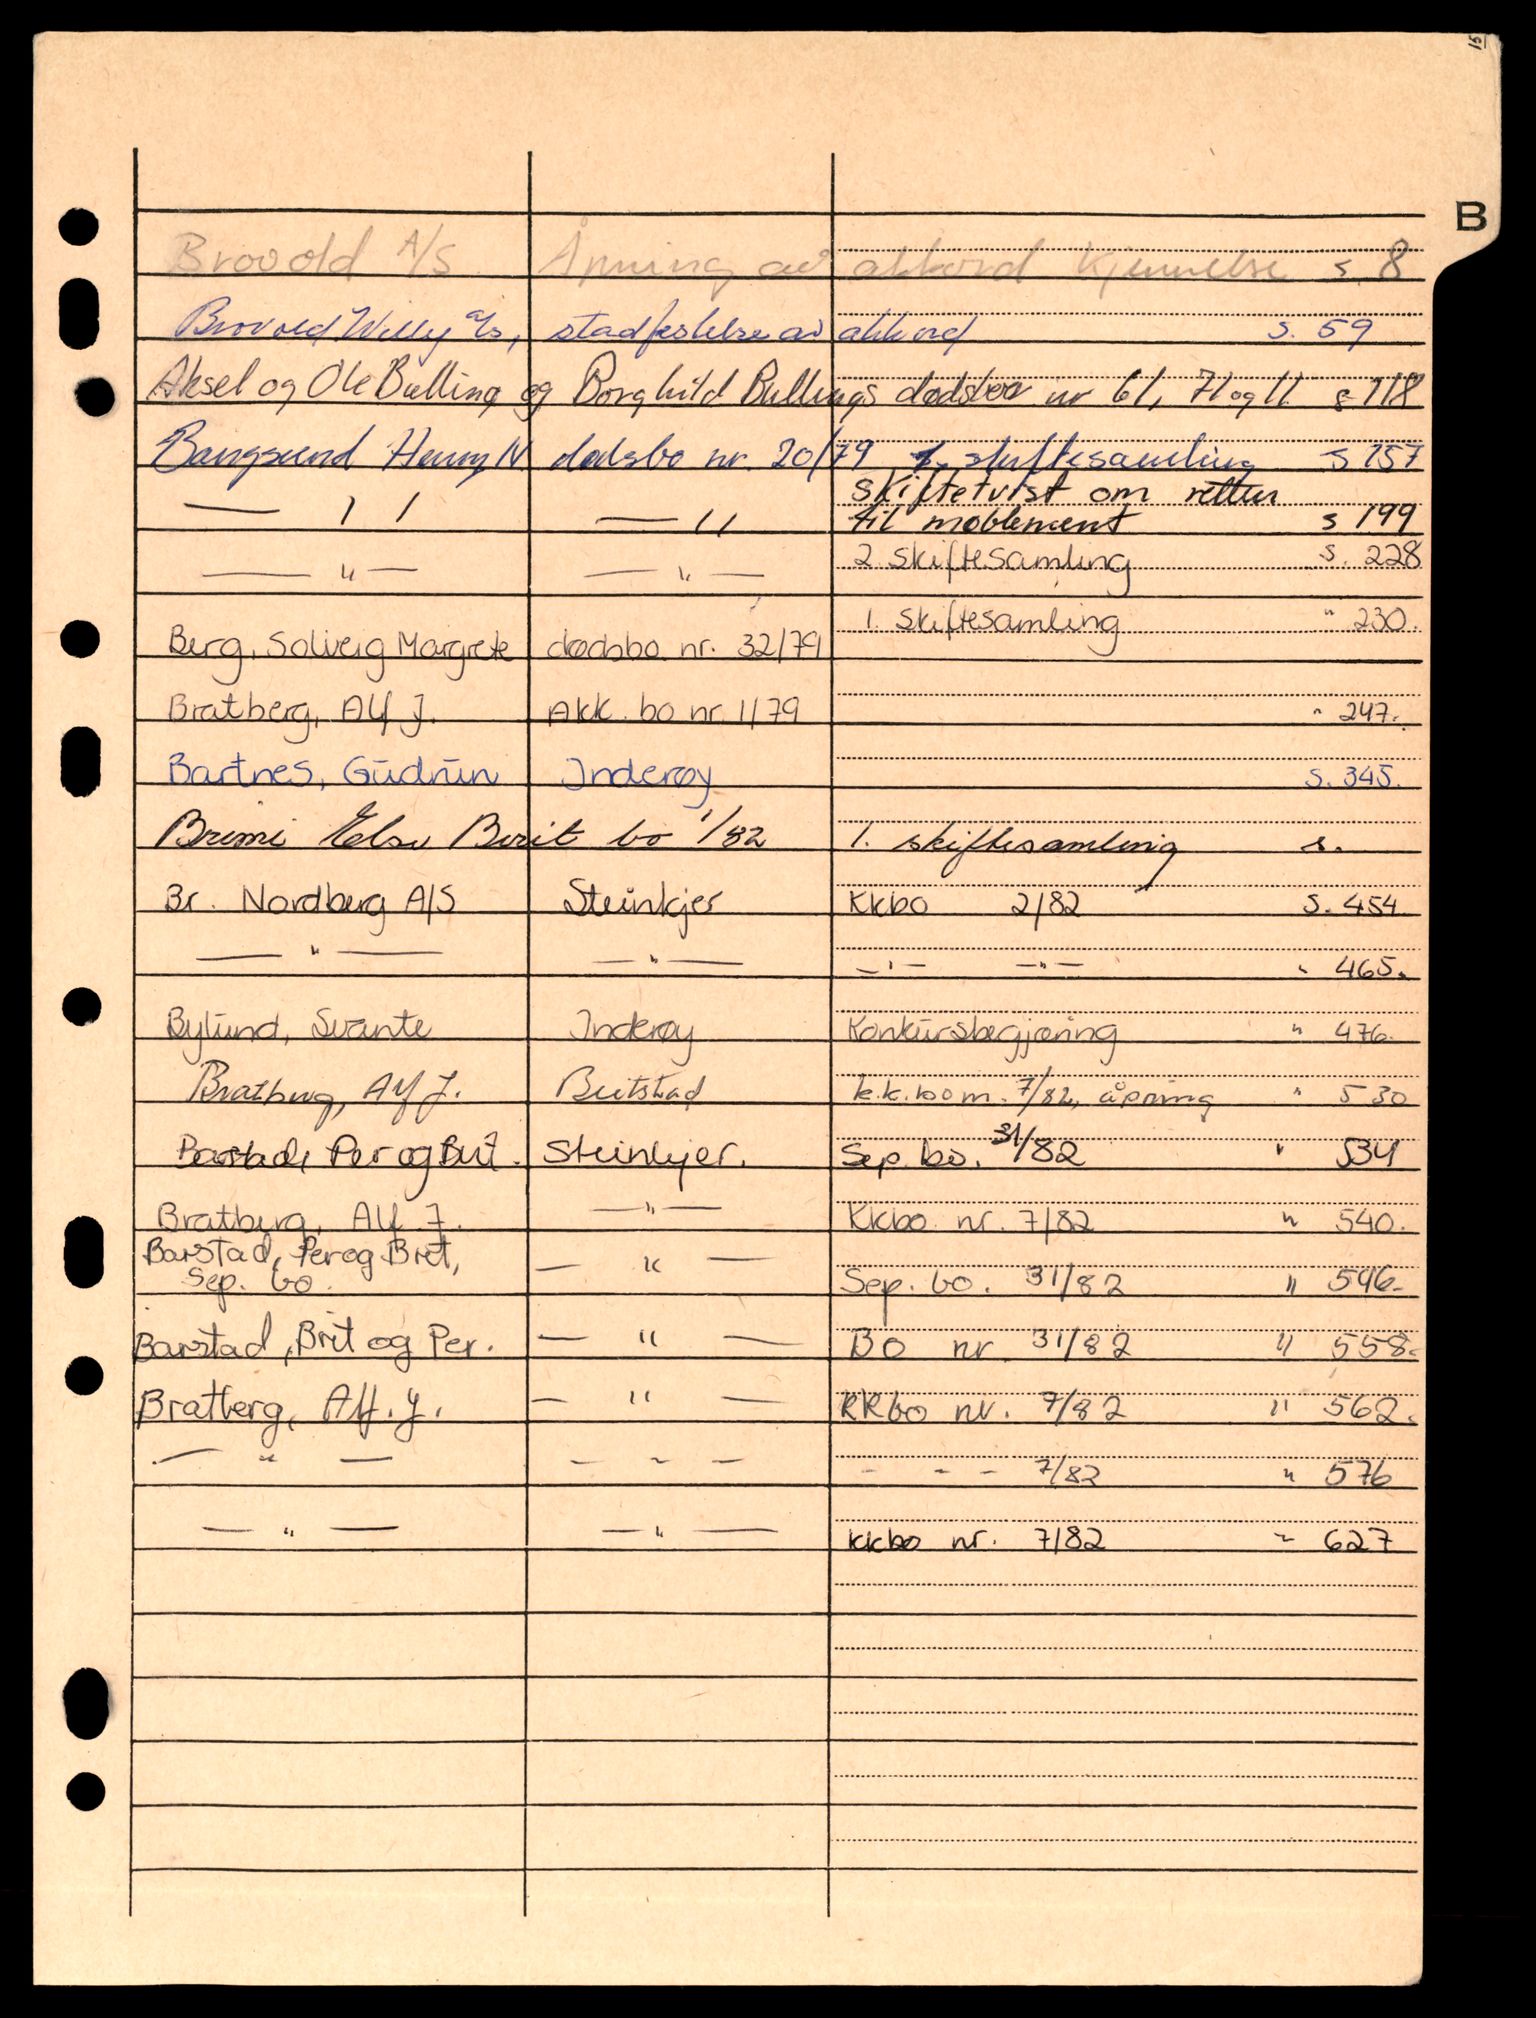 B
Brovold A/S Åpning av akkord kjennelse s. 8
Brovold Willy a/s, stadfestelse av akkord s. 59
Aksel og Ole Bulling og Borghild Bullings dødsboer nr 61, 71 og 11 s 118
Bangsund Henry N dødsbo nr. 20/79 1. skiftesamling s 157
— 11 — 11 skiftetvist om retten
til møblement s 199
— " — — " — 2. skiftesamling s. 228
1. skiftesamling " 230.
Berg, Solveig Margrete dødsbo nr. 32/79
Bratberg, Alf J. Akk. bo nr. 1/79 " 247.
Bartnes, Gudrun Inderøy s. 345.
Brimi Else Berit bo 1/82 1. skiftesamling s.
Br. Nordberg A/S Steinkjer Kkbo 2/82 s. 454
— " — — " — — " — — " — " 465.
Bylund, Svante Inderøy Konkursbegjæring " 476.
Bratberg, Alf J. Beitstad k.k.bo nr. 7/82, åpning " 530
Barstad, Per og Brit. Steinkjer. Sep. bo. 31/82 " 534
Bratberg, Alf J. — " — Kkbo nr. 7/82 " 540.
Barstad, Per og Brit,
Sep. bo. — " — Sep. bo. 31/82 " 546.
Barstad, Brit og Per. — " — BO nr 31/82 " 558.
Bratberg, Alf. J. — " — KKbo nr. 7/82 " 562.
— " — — " — - - - 7/82 " 576
— " — — " — kkbo nr. 7/82 " 627